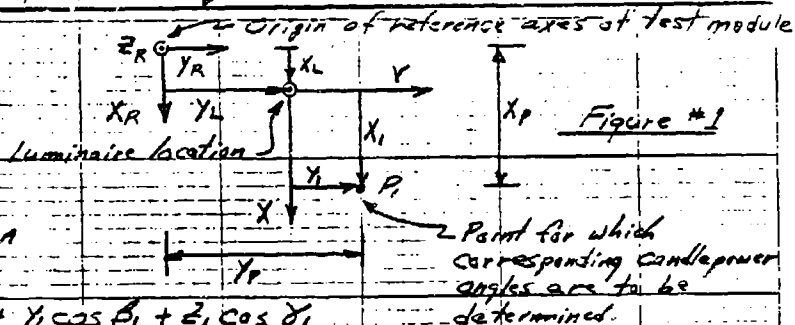 Origin of reference axes at test module
Z_R
Y_R
X_L
X_R
Y_L
Y
X_P
Figure #1
X_1
Luminaire location
Y_1
P_1
X
Point for which
corresponding candlepower
angles are to be
determined.
Y_P
Y_1 cos β_1 + Z_1 cos γ_1